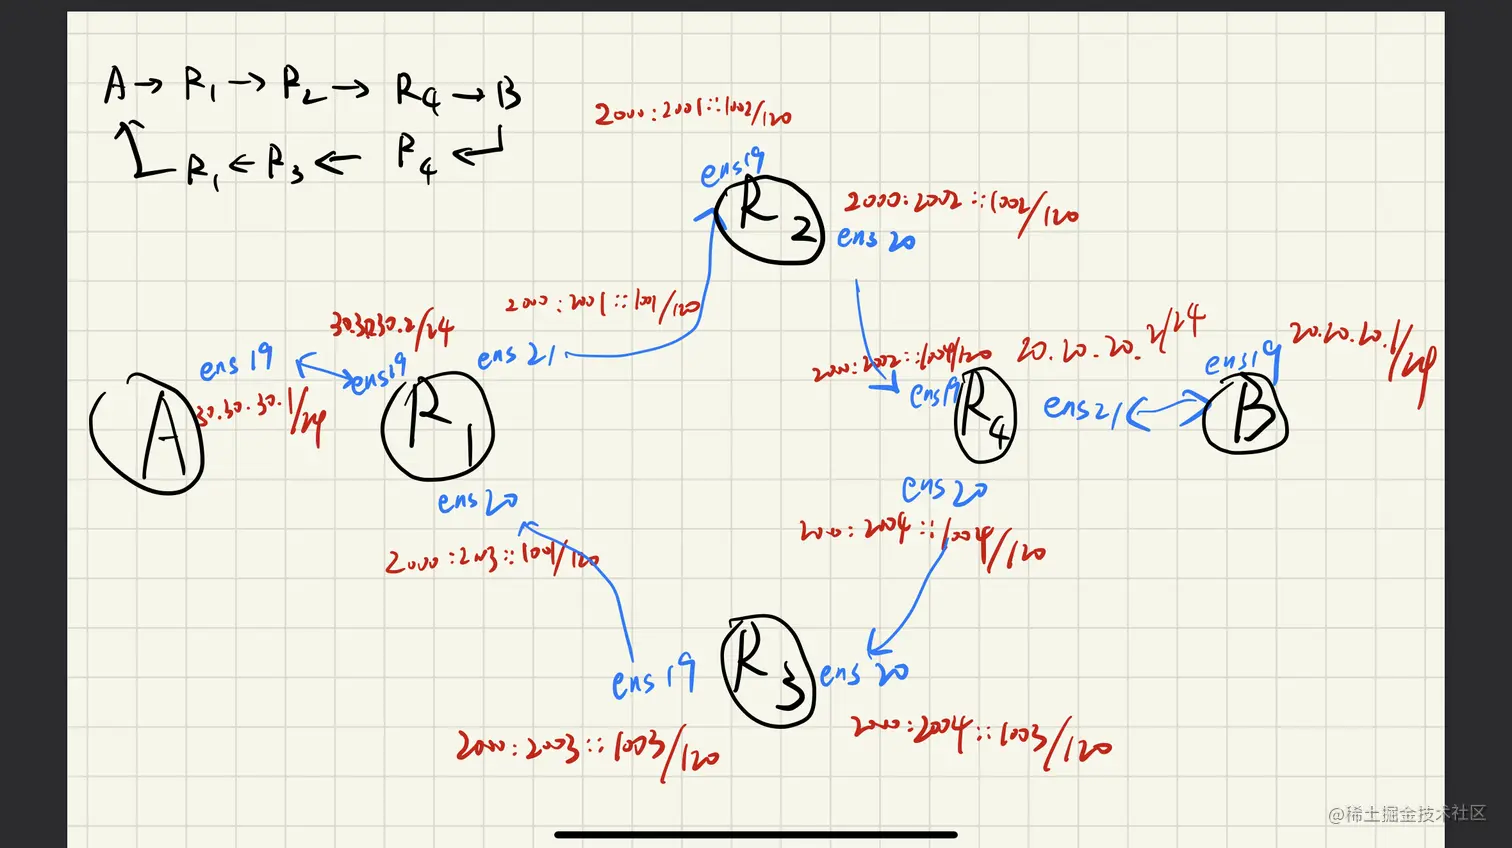 A → R1 → R2 → R4 → B
R1 ← R3 ← R4
2000:2001::1002/120
ens19
R2
2000:2002::1002/120
ens20
2000:2001::1001/120
30.30.30.2/24
ens21
ens19
ens19
30.30.30.1/24
A
R1
2000:2002::1004/120
20.20.20.2/24
20.20.20.1/24
ens19
ens19
R4
ens21
B
ens20
2000:2003::1001/120
ens20
2000:2004::1004/120
ens19
R3
ens20
2000:2003::1003/120
2000:2004::1003/120
@稀土掘金技术社区